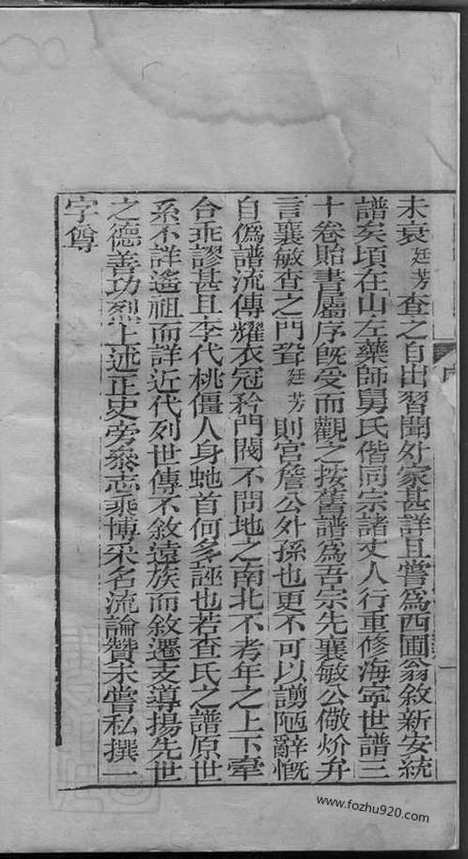 未衰廷芳查之自出習聞外家甚詳且嘗爲西圃翁敘新安統
譜矣頃在山左藥師舅氏偕同宗諸丈人行重修海寧世譜三
十卷貽書屬序旣受而觀之按舊譜爲吾宗先襄敏公儆炌弁
言襄敏查之門聟廷芳則宮詹公外孫也更不可以謭陋辭慨
自僞譜流傳耀衣冠矜門閥不問地之南北不考年之上下牽
合乖謬甚且李代桃僵人身虵首何多誣也若查氏之譜原世
系不詳遙祖而詳近代列世傳不敘遠族而敘遷支導揚先世
之德善功烈上述正史旁叅志乘博采名流論贊未嘗私撰一
字尊
序
一
www.fozhu920.com